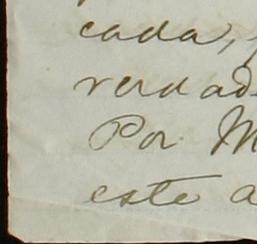 cada,
verdad
Por M
este a